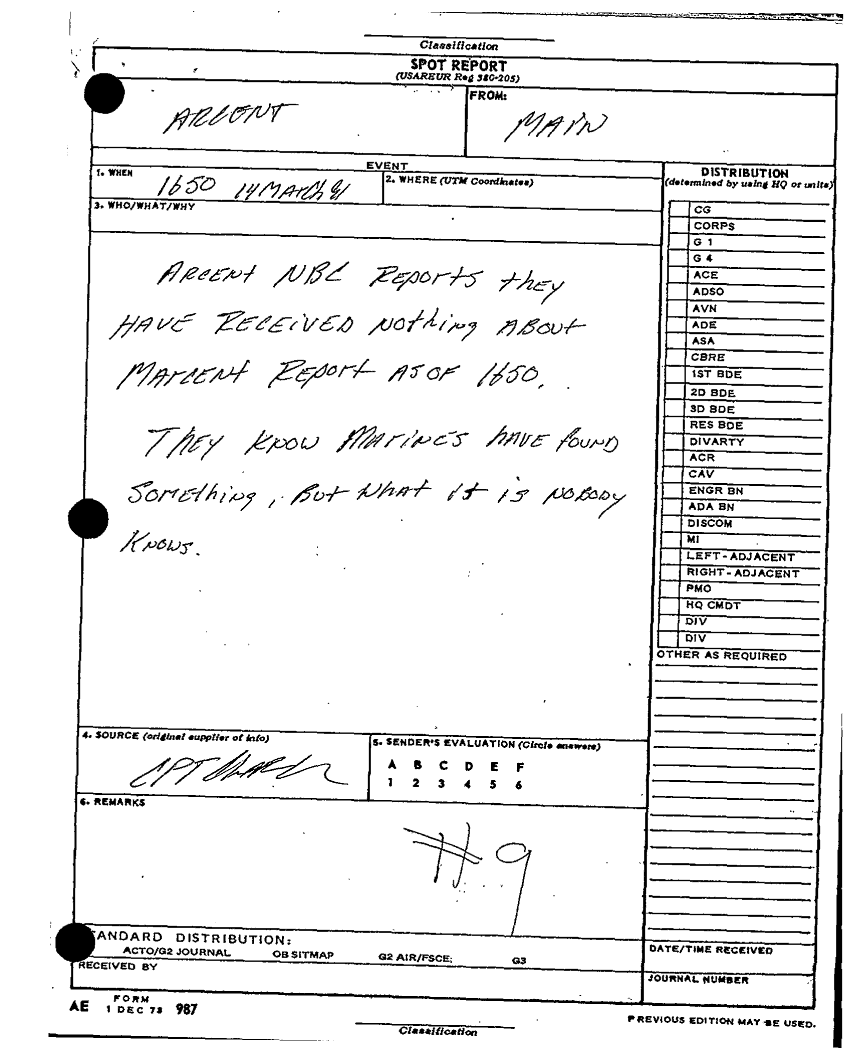 Classification
SPOT REPORT
(USAREUR Reg 380-205)
ARCENT
FROM:
MAIN
EVENT
1. WHEN
1650 14 MARCH 91
2. WHERE (UTM Coordinates)
3. WHO/WHAT/WHY
ARCENT NBC REPORTS they
HAVE RECEIVED NOTHING ABOUT
MARCENT REPORT AS OF 1650.
THEY KNOW MARINES HAVE FOUND
SOMETHING, BUT WHAT IT IS NOBODY
KNOWS.
DISTRIBUTION
(determined by using HQ or units)
CG
CORPS
G 1
G 4
ACE
ADSO
AVN
ADE
ASA
CBRE
1ST BDE
2D BDE
3D BDE
RES BDE
DIVARTY
ACR
CAV
ENGR BN
ADA BN
DISCOM
MI
LEFT-ADJACENT
RIGHT-ADJACENT
PMO
HQ CMDT
DIV
DIV
OTHER AS REQUIRED
4. SOURCE (original supplier of info)
CPT
5. SENDER'S EVALUATION (Circle answers)
A B C D E F
1 2 3 4 5 6
6. REMARKS
#9
STANDARD DISTRIBUTION:
ACTO/G2 JOURNAL OB SITMAP G2 AIR/FSCE; G3
RECEIVED BY
DATE/TIME RECEIVED
JOURNAL NUMBER
AE FORM 1 DEC 78 987
PREVIOUS EDITION MAY BE USED.
Classification